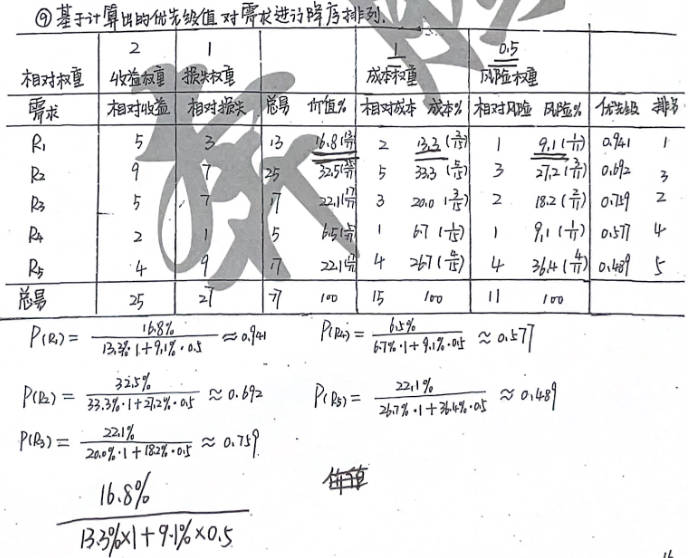 ⑨基于计算出的优先级值对需求进行降序排列.
2 1 1 0.5
相对权重 收益权重 损失权重 成本权重 风险权重
需求 相对收益 相对损失 总易 价值% 相对成本 成本% 相对风险 风险% 优先级 排名
R1 5 3 13 16.8 2 13.3 (2/15) 1 9.1 (1/11) 0.941 1
R2 9 7 25 32.5 5 33.3 (5/15) 3 27.2 (3/11) 0.692 3
R3 5 7 17 22.1 (17/77) 3 20.0 (3/15) 2 18.2 (2/11) 0.759 2
R4 2 1 5 6.5 (5/77) 1 6.7 (1/15) 1 9.1 (1/11) 0.577 4
R5 4 9 17 22.1 4 26.7 4 36.4 (4/11) 0.489 5
总易 25 27 77 100 15 100 11 100
P(R1) = 16.8% / 13.3%·1+9.1%·0.5 ≈ 0.941 P(R4) = 6.5% / 6.7%·1+9.1%·0.5 ≈ 0.577
P(R2) = 32.5% / 33.3%·1+27.2%·0.5 ≈ 0.692 P(R5) = 22.1% / 26.7%·1+36.4%·0.5 ≈ 0.489
P(R3) = 22.1% / 20.0%·1+18.2%·0.5 ≈ 0.759
16.8% / 13.3%×1+9.1%×0.5